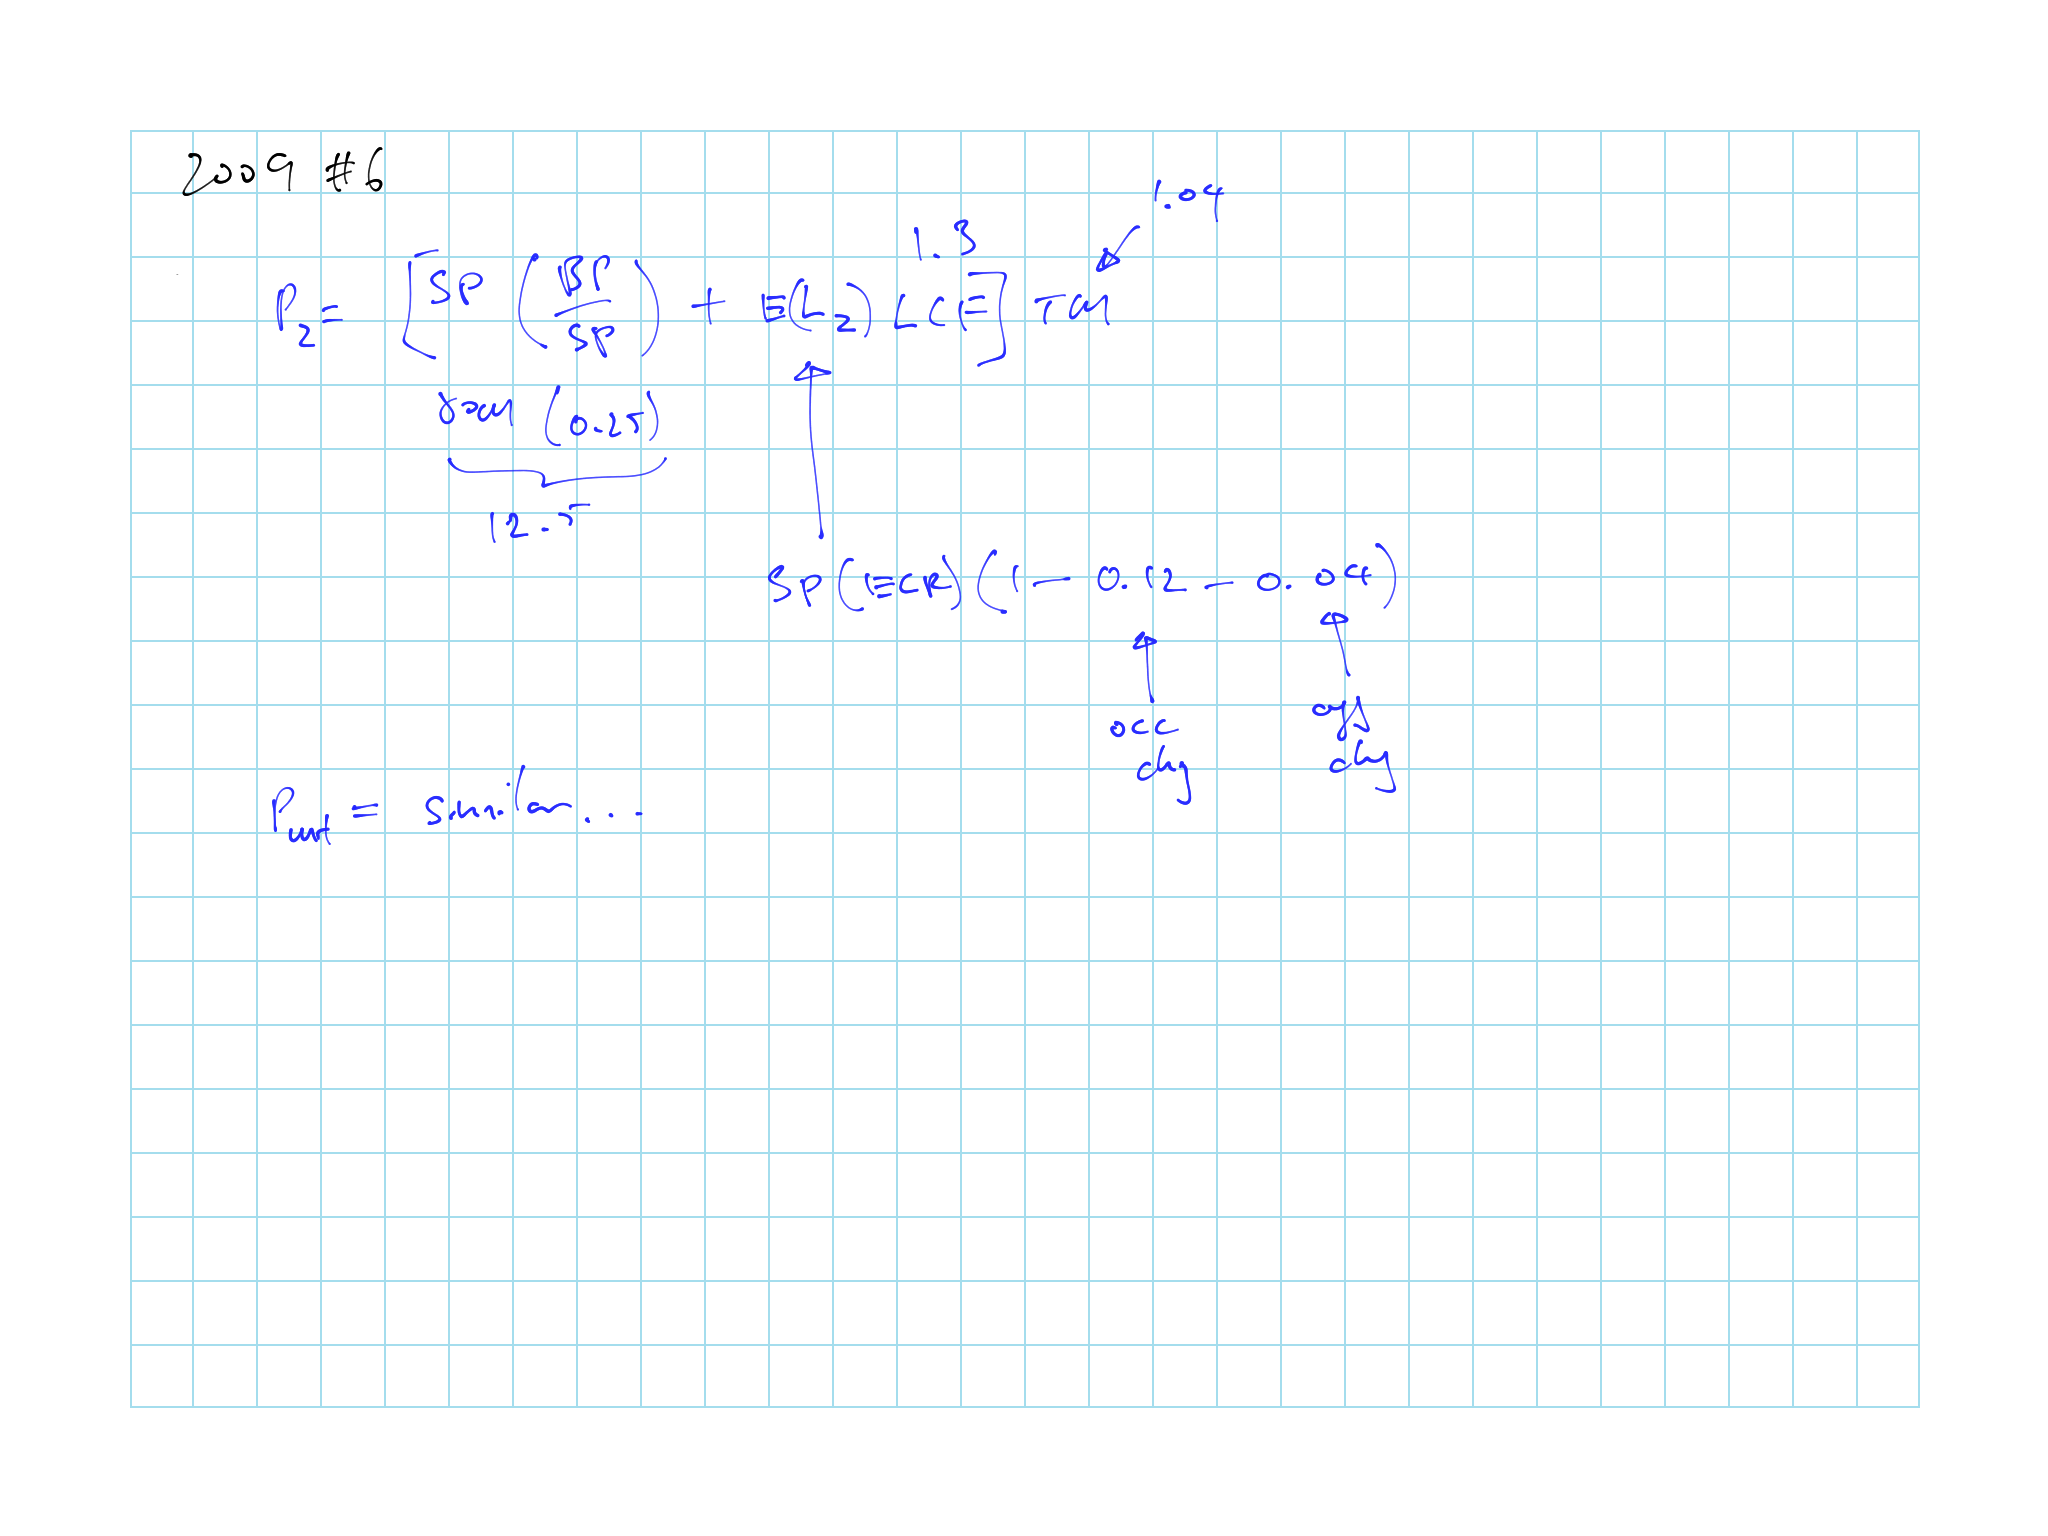 2009 #6
1.04
1.3
P2 = [SP (BP/SP) + E(L2) LCF] TM
(0.25)
12.5
SP (ECR) (1 - 0.12 - 0.04)
occ
chg chg
P = similar...